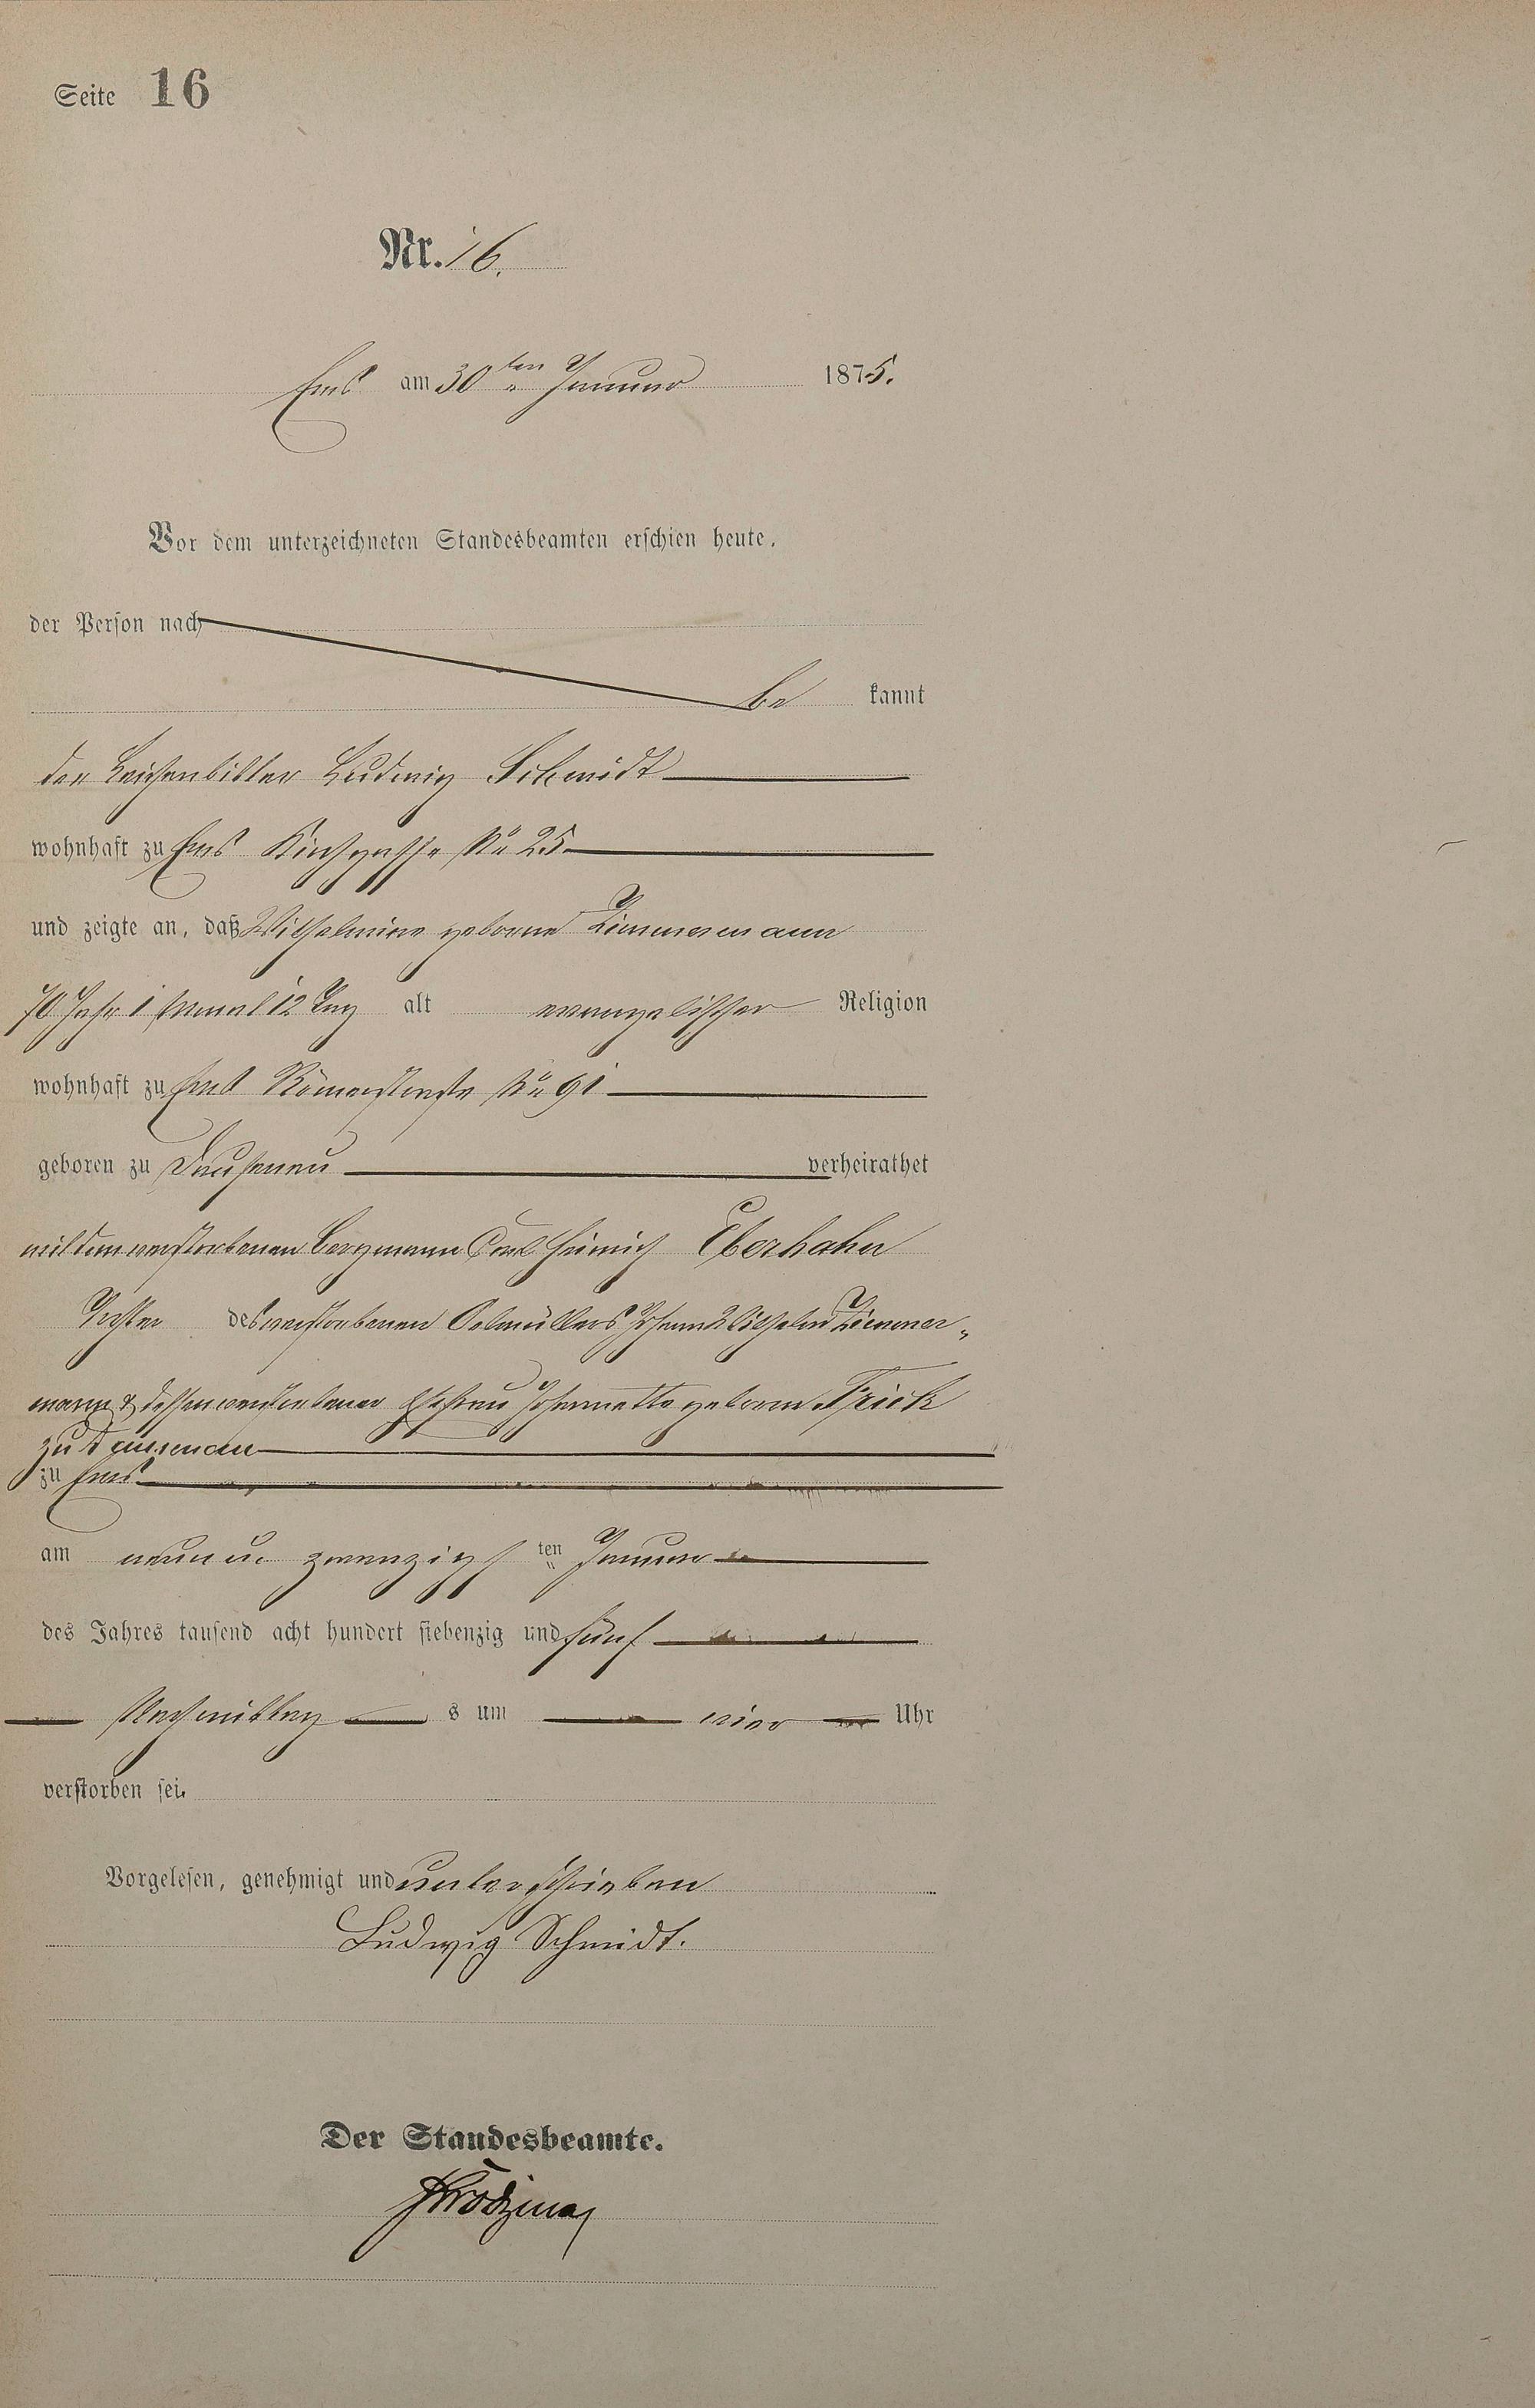 Seite 16
Nr. 16.
Ems am 30ten Januar 1875.
Vor dem unterzeichneten Standesbeamten erschien heute,
der Person nach
be kannt
der Leichenbitter Ludwig Schmidt
wohnhaft zu Ems Kirchgasse No 25
und zeigte an, daß Wilhelmine geborne Zimmermann
70 Jahr 1 Monat 12 Tag alt evangelischer Religion
wohnhaft zu Ems Römerstraße No 91
geboren zu Dausenau verheirathet
mit dem verstorbenen Bergmann Carl Heinrich Eberhahn
Tochter des verstorbenen Oelmüllers Johann Wilhelm Zimmer„
mann & dessen verstorbener Ehefrau Johannette geborne Frick
zu Dausenau
zu Ems
am neun u. zwanzigs ten Januar
des Jahres tausend acht hundert siebenzig und fünf
Nachmittag s um vier Uhr
verstorben sei.
Vorgelesen, genehmigt und unterschrieben
Ludwig Schmidt.
Der Standesbeamte.